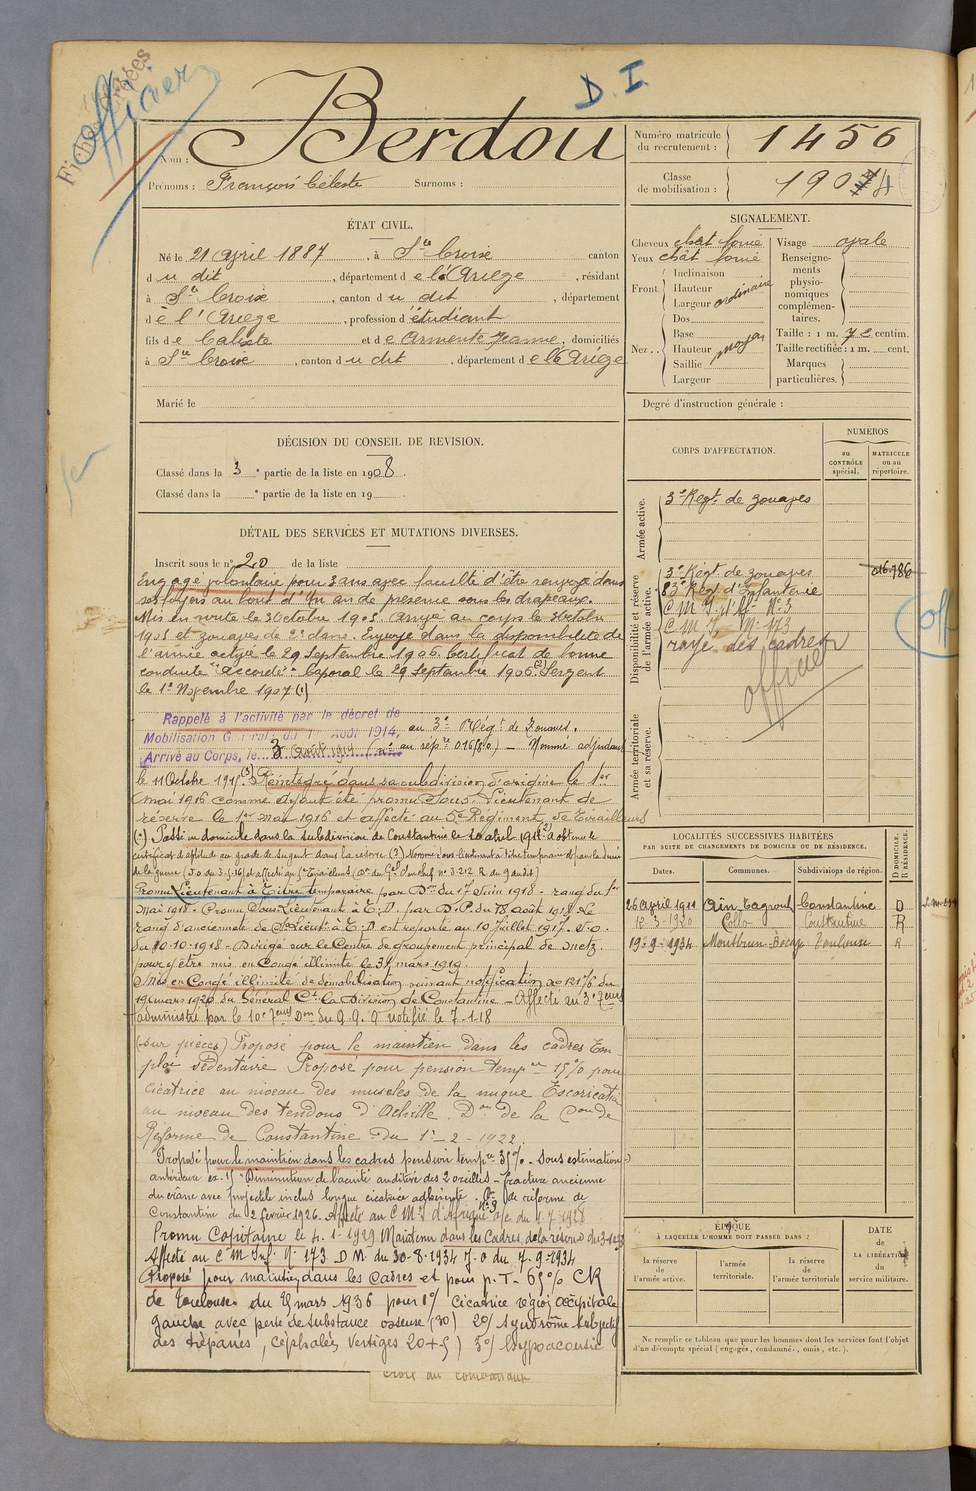 Officier
D. I.
Nom : Berdou
Prénoms : François Céleste Surnoms :
Numéro matricule du recrutement : 1456
Classe de mobilisation : 1904
ÉTAT CIVIL.
Né le 21 avril 1887, à Ste Croix canton
du dit, département de l'Ariège, résidant
à Ste Croix, canton du dit, département
de l'Ariège, profession d'étudiant
fils de Calixte et de Armente Jeanne, domiciliés
à Ste Croix, canton du dit, département de l'Ariège
Marié le
SIGNALEMENT.
Cheveux chât foncé
Yeux chât foncé
Front
Inclinaison
Hauteur
Largeur ordinaire
Nez
Dos
Base
Hauteur moyen
Saillie
Largeur
Visage ovale
Renseignements physionomiques complémentaires.
Taille : 1 m. 72 centim.
Taille rectifiée : 1 m. cent.
Marques particulières.
Degré d'instruction générale :
DÉCISION DU CONSEIL DE REVISION.
Classé dans la 3e partie de la liste en 1908.
Classé dans la e partie de la liste en 19
DÉTAIL DES SERVICES ET MUTATIONS DIVERSES.
Inscrit sous le n° 20 de la liste
Engagé volontaire pour 3 ans avec faculté d'être renvoyé dans
ses foyers au bout d'un an de présence sous les drapeaux.
Mis en route le 3 Octobre 1905. Arrivé au corps le Octobre
1905 et zouaves de 2e classe. Envoyé dans la disponibilité de
l'armée active le 29 Septembre 1906. Certificat de bonne
conduite "accordé". Caporal le 29 Septembre 1906. (2) Sergent
le 1er Novembre 1907 (1)
Rappelé à l'activité par le décret de
Mobilisation Générale du 1er Août 1914, au 3e Régt de Zouaves.
Arrivé au Corps, le 3 Août 1914 (n° au rép. 016986) - Nommé adjudant
le 11 Octobre 1915. (3) Réintégré dans sa subdivision d'origine le 1er
mai 1916 comme ayant été promu Sous-Lieutenant de
réserve le 1er Mai 1916 et affecté au 5e Régiment de Tirailleurs
(1) Passé en domicile dans la subdivision de Constantine le 26 avril 1911 (2) a obtenu le
certificat d'aptitude au grade de sergent dans la réserve (3) Nommé sous lieutenant à titre temporaire
de la guerre
Promu Lieutenant à Titre temporaire par Don du 17 Juin 1918 - rang du 1er
Mai 1918. Promu Sous-Lieutenant à T. D. par D. P. du 18 août 1918. Le
rang d'ancienneté de S/Lieut. à T. D est reporté au 10 Juillet 1917. J.O.
du 10-10-1918 - Dirigé sur le Centre de groupement principal de Metz
pour y être mis en Congé illimité le 31 mars 1919.
Mis en Congé illimité de démobilisation suivant notification du
19 mars 1920 du Général Ct la Division de Constantine - Affecté au 3e Zouaves
administré par le 10e
(sur pièces) Proposé pour le maintien dans les cadres Em-
ploi sédentaire Proposé pour pension tempre 15% pour
cicatrice au niveau des muscles de la nuque Excoriation
au niveau des tendons d'Achille. Don de la Con de
Réforme de Constantine du 1er-2-1922.
Proposé pour le maintien dans les cadres pension tempre 35% - Sous estimation
antérieure Diminution de l'acuité auditive des 2 oreilles - fracture ancienne
du crâne avec projectile inclus longue cicatrice adhérente. Con de réforme de
Constantine du 2 février 1926. Affecté au C M I d'Afrique N° 3
Promu Capitaine le 4. 1. 1929 Maintenu dans les Cadres de la réserve
Affecté au C M Inf. N° 173 D M. du 30-8-1934 J. O du 7.9.1934
Proposé pour maintien dans les Cadres et pour p. T. 65% CR
de Toulouse du 25 mars 1936 pour 1°/ Cicatrice région occipitale
gauche avec perte de substance osseuse (30) 2°/ syndrôme subjectif
des trépanés, céphalées vertiges 20+5) 3°/ hypoacousie
Croix du Combattant
CORPS D'AFFECTATION.
NUMÉROS
au CONTRÔLE spécial.
MATRICULE ou au répertoire.
Armée active.
3e Régt. de zouaves
Disponibilité et réserve de l'armée active.
3e Régt. de zouaves 016.986
83e Régt d'Infanterie
C M I d'Aff. N° 3
C M I N° 173
rayé des cadres
officier
Armée territoriale et sa réserve.
LOCALITÉS SUCCESSIVES HABITÉES
PAR SUITE DE CHANGEMENTS DE DOMICILE OU DE RÉSIDENCE.
Dates. Communes. Subdivisions de région.
D DOMICILE. R RÉSIDENCE.
26 avril 1911 Constantine D
12-3-1930 Collo Constantine R
19-9-1934 Montbrun-Bocage Toulouse R
ÉPOQUE
À LAQUELLE L'HOMME DOIT PASSER DANS :
la réserve de l'armée active.
l'armée territoriale.
la réserve de l'armée territoriale
DATE de LA LIBÉRATION du service militaire.
Ne remplir ce tableau que pour les hommes dont les services font l'objet
d'un décompte spécial (engagés, condamnés, omis, etc.).